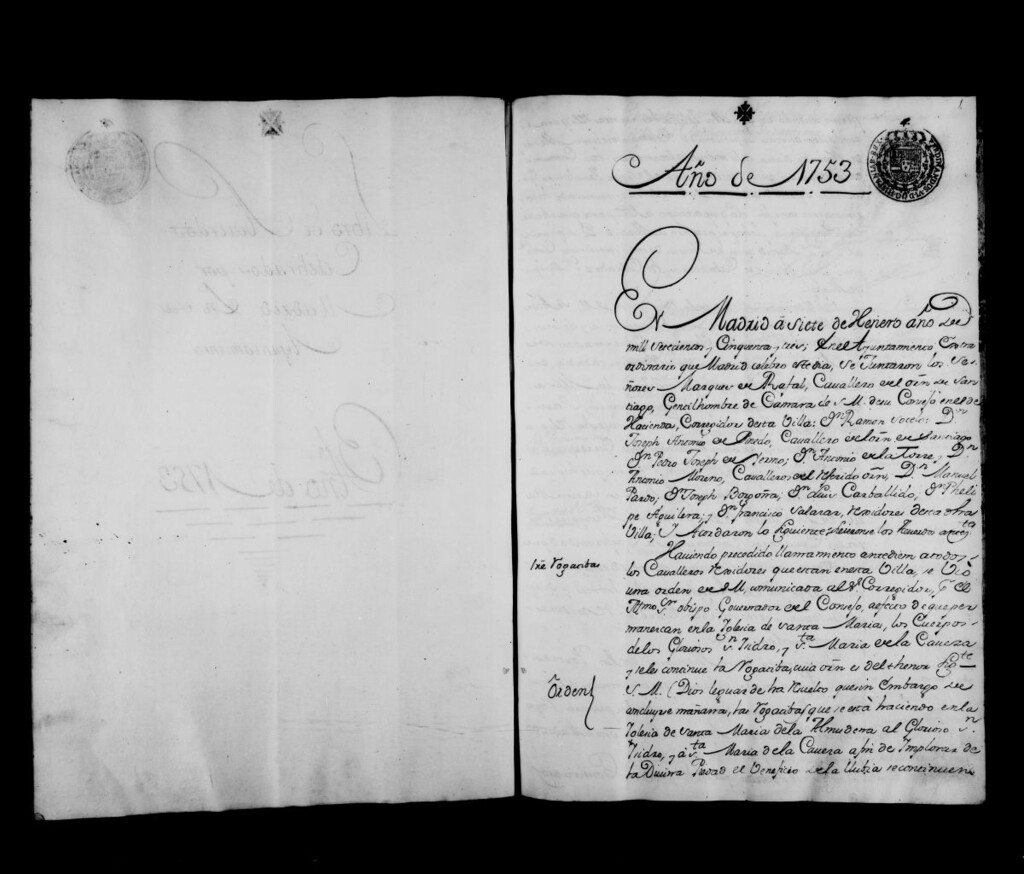 1
Año de 1753
En Madrid â siete de Henero año de
mill setecientos y Cinquenta y tres; En el Ayuntamiento Extra
ordinario que Madrid celebrò este dia, se Juntaron los Se-
ñores Marques de Rafal, Cavallero del orñ de San-
tiago, Gentilhombre de Cámara de S. M. de su Consejo en el de
Hacienda, Corregidor desta Villa: Dn Ramon Sotelo: Dn
Joseph Antonio de Pinedo, Cavallero del orñ de Santiago
Dn Pedro Joseph de; Dn Antonio de la Torre, y Dn
Antonio Moreno, Cavalleros del referido orñ, Dn Manuel
Pardo; Dn Joseph; Dn Luis Carballido; Dn Pheli
pe Aguilera; y Dn francisco Salazar, rexidores desta dha
Villa; Y Acordaron lo siguiente
Haviendo precedido llamamiento antediem a todos
Rogatibas
los Cavalleros rexidores que estan en esta Villa, se viò
una orden de S M, comunicada al Sr Corregidor, Pr el
Illmo Sr obispo Governador del Consejo, a efecto de que per
manezcan en la Iglesia de Santa Maria, los Cuerpos
de los Gloriosos Sn Isidro, y Sta Maria de la Caveza
y se les continue la Rogatiba, cuia orñ es del thenor sigte
Òrden
S. M. (Dios le guarde) ha resuelto que sin Embargo de
concluyrse mañana, las Rogatibas que se està haciendo en la
Iglesia de Santa Maria de la Almudena al Glorioso Sn
Isidro, y â Sta Maria de la Caveza a fin de Implorar de
la Divina Piedad el Veneficio de la llubia se continuen